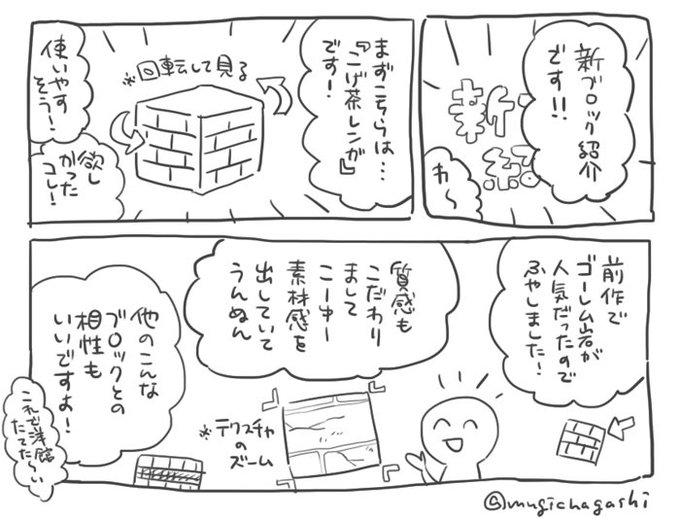 新ブロック紹介
です!!
新ブ
紹
わ〜
まずこちらは…
『こげ茶レンガ』
です!
※回転して見る
使いやす
そう!
欲し
かった
コレ!
前作で
ゴーレム岩が
人気だったので
ふやしました!
質感も
こだわり
まして
こーゆー
素材感を
出していて
うんぬん
※テクスチャ
の
ズーム
他のこんな
ブロックとの
相性も
いいですよ!
これで洋館
たてた〜い
@mugichagashi